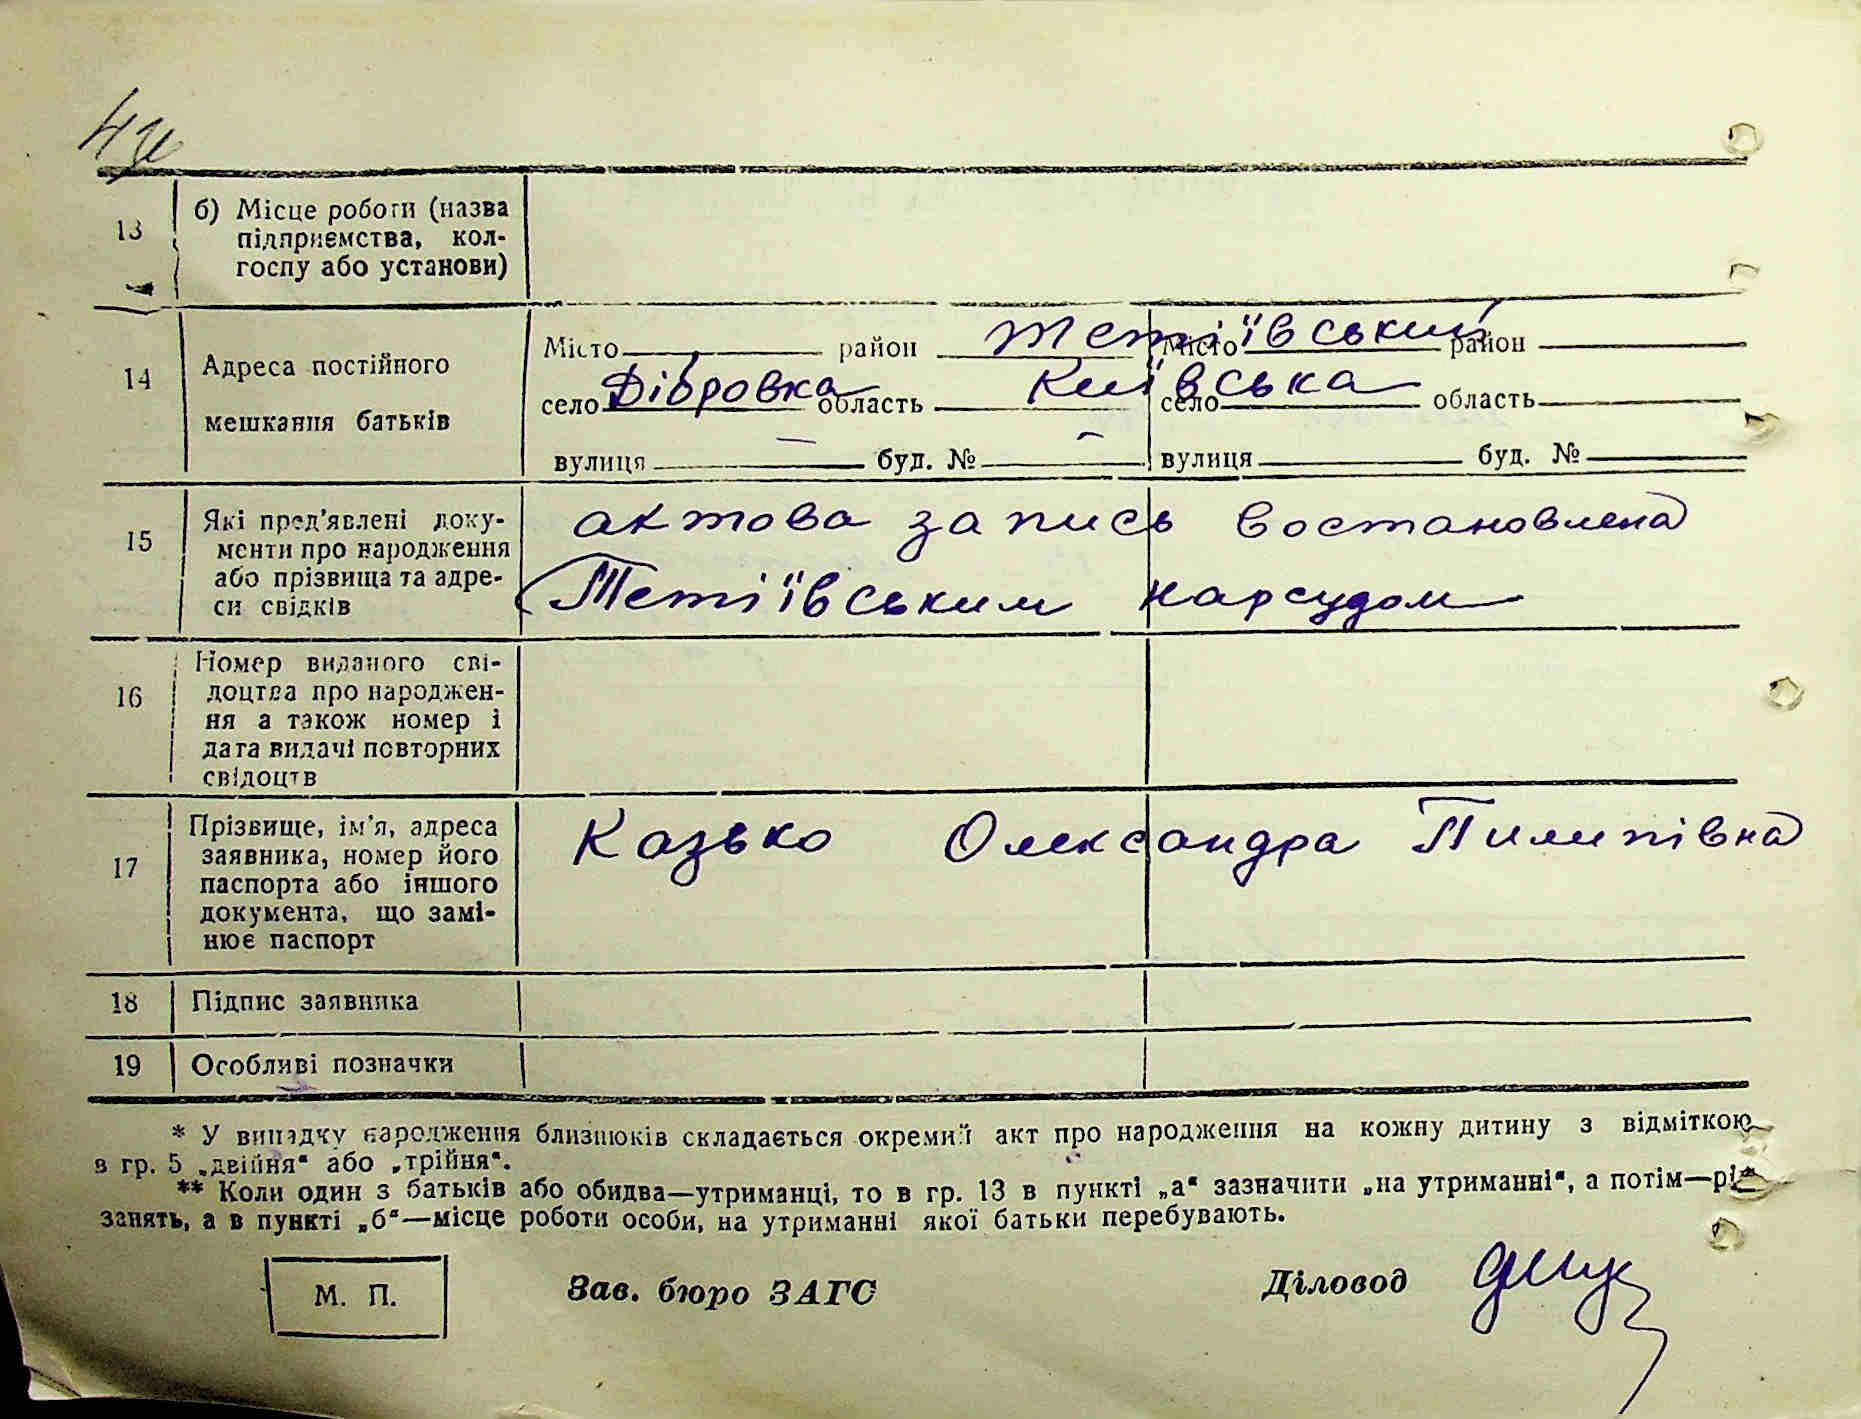 13 б) Місце роботи (назва
підприємства, кол-
госпу або установи)
14 Адреса постійного
мешкання батьків
Місто район Тетіївський Місто район
село Дібровка область Київська село область
вулиця — буд. № — вулиця буд. №
15 Які пред'явлені доку-
менти про народження
або прізвища та адре-
си свідків
актова запись востановлена
Тетіївським нарсудом
16 Номер виданого сві-
доцтва про народжен-
ня а також номер і
дата видачі повторних
свідоцтв
17 Прізвище, ім'я, адреса
заявника, номер його
паспорта або іншого
документа, що замі-
нює паспорт
Казько Олександра Пилипівна
18 Підпис заявника
19 Особливі позначки
* У випадку народження близнюків складається окремий акт про народження на кожну дитину з відміткою
в гр. 5 „двійня“ або „трійня“.
** Коли один з батьків або обидва—утриманці, то в гр. 13 в пункті „а“ зазначити „на утриманні“, а потім—рід
занять, а в пункті „б“—місце роботи особи, на утриманні якої батьки перебувають.
М. П. Зав. бюро ЗАГС Діловод